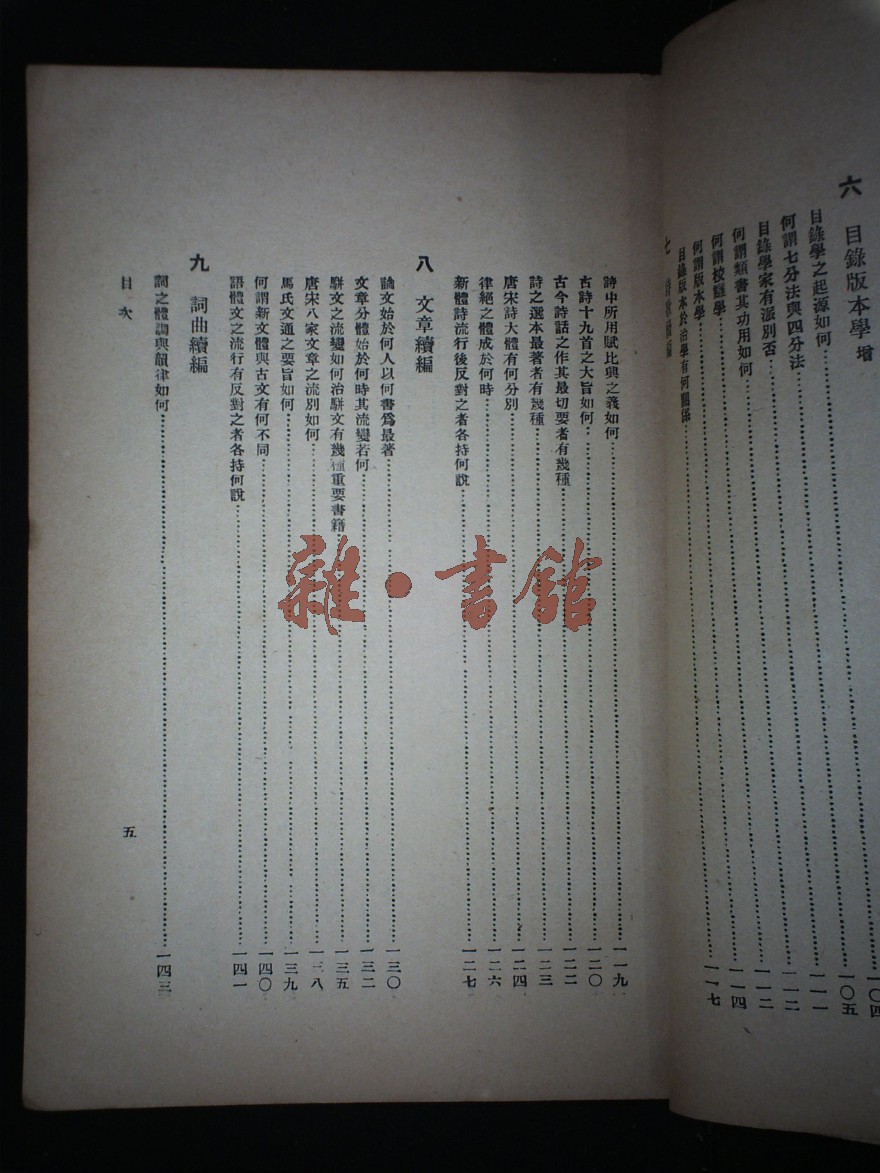 六 目錄版本學 增
目錄學之起源如何
何謂七分法與四分法
目錄學家有派別否
何謂類書其功用如何
何謂校讎學
何謂版本學
目錄版本於治學有何關係
一〇四
一〇五
一一一
一一二
一一二
一一四
一一七
七
詩中所用賦比興之義如何 一一九
古詩十九首之大旨如何 一二〇
古今詩話之作其最切要者有幾種 一二二
詩之選本最著者有幾種 一二三
唐宋詩大體有何分別 一二四
律絕之體成於何時 一二六
新體詩流行後反對之者各持何說 一二七
八 文章續編
論文始於何人以何書爲最著 一三〇
文章分體始於何時其流變若何 一三二
駢文之流變如何治駢文有幾種重要書籍 一三五
唐宋八家文章之流別如何 一三八
馬氏文通之要旨如何 一三九
何謂新文體與古文有何不同 一四〇
語體文之流行有反對之者各持何說 一四一
九 詞曲續編
詞之體調與韻律如何 一四三
目次
五
雜·書館